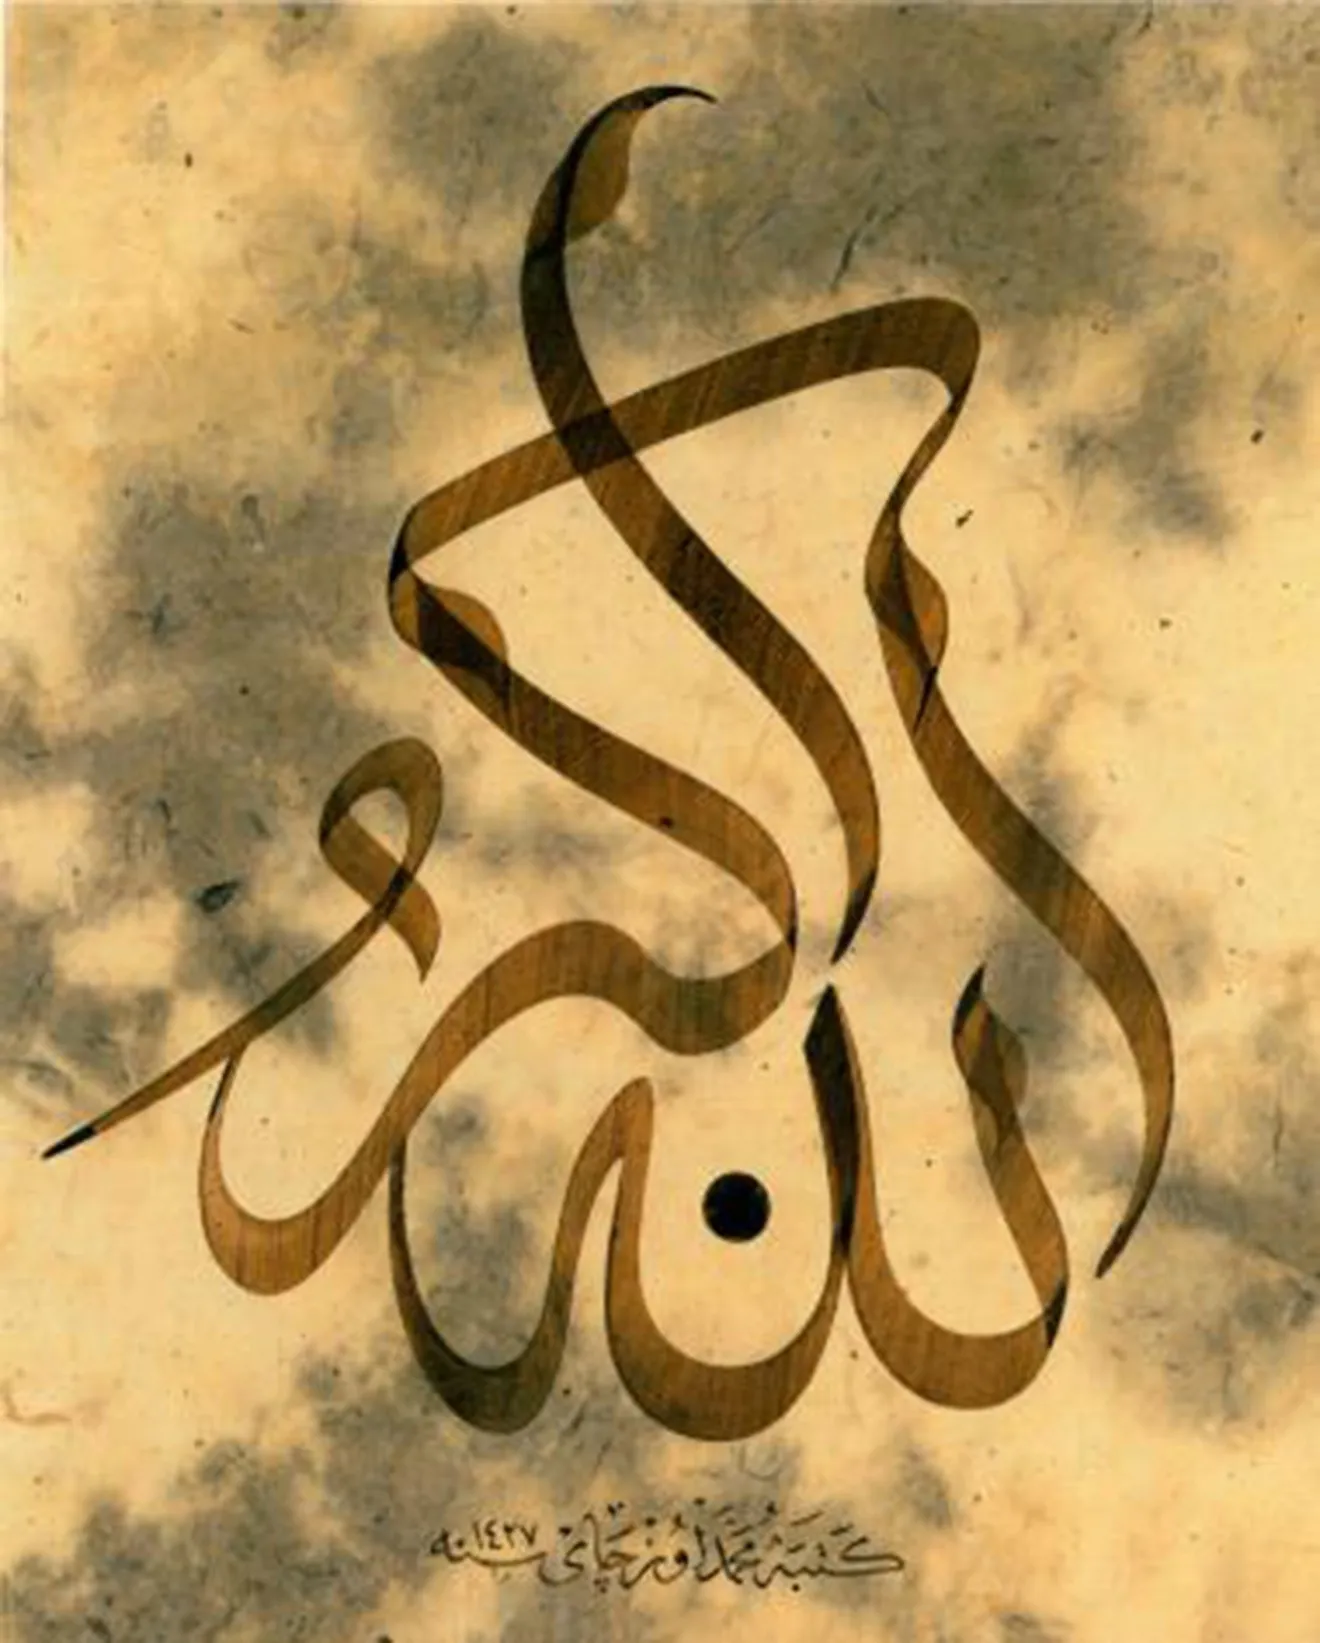 الله اكبر
كَتَبَهُ مُحَمَّد اوُزچَاى سنه ١٤٢٧